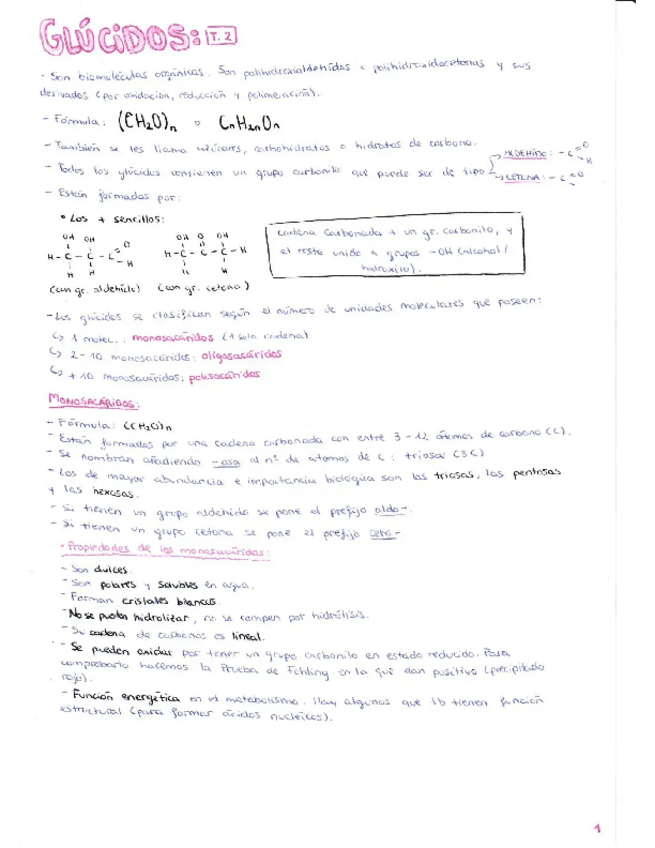 GLÚCIDOS: T.2
· Son biomoléculas orgánicas. Son polihidroxialdehídos o polihidroxidacetonas y sus
derivados (por oxidación, reducción y polimeración).
- Fórmula: (CH₂O)n o CnH₂nOn
- También se les llama azúcares, carbohidratos o hidratos de carbono.
- Todos los glúcidos contienen un grupo carbonilo que puede ser de tipo
↳ ALDEHÍDO: -C=O H
↳ CETONA: -C=O
- Están formados por:
• Los + sencillos:
OH OH O
H-C-C-C-H
H H
(con gr. aldehído)
OH O OH
H-C-C-C-H
H H
(con gr. cetona)
cadena carbonada + un gr. carbonilo, y
el resto unido a grupos -OH (alcohol/
hidroxilo).
- Los glúcidos se clasifican según el número de unidades moleculares que poseen:
↳ 1 molec.: monosacáridos (1 sola cadena)
↳ 2-10 monosacáridos: oligosacáridos
↳ +10 monosacáridos: polisacáridos
MONOSACÁRIDOS:
- Fórmula: (CH₂O)n
- Están formados por una cadena carbonada con entre 3-12 átomos de carbono (C).
- Se nombran añadiendo -osa al nº de atomos de C: triosa (3C)
- Los de mayor abundancia e importancia biológica son las triosas, las pentosas
y las hexosas.
- Si tienen un grupo aldehído se pone el prefijo aldo-.
- Si tienen un grupo cetona se pone el prefijo ceto-
· Propiedades de los monosacáridos:
- Son dulces.
- Son polares y solubles en agua.
- Forman cristales blancos.
- No se pueden hidrolizar, no se rompen por hidrólisis.
- Su cadena de carbonos es lineal.
- Se pueden oxidar por tener un grupo carbonilo en estado reducido. Para
comprobarlo hacemos la Prueba de Fehling en la que dan positivo (precipitado
rojo).
- Función energética en el metabolismo. Hay algunos que tb tienen función
estructural (para formar ácidos nucleicos).
1